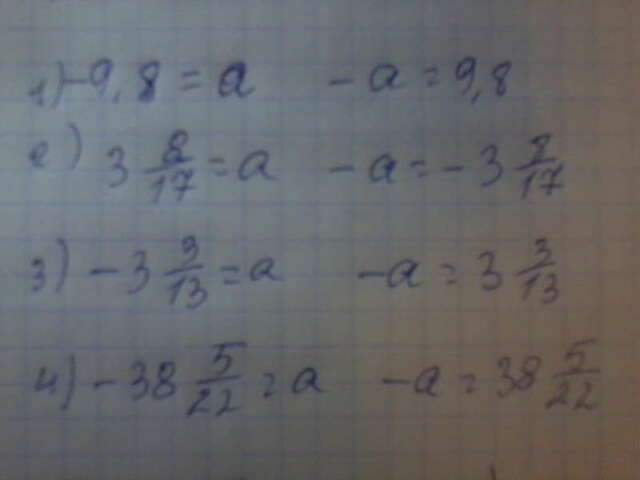 1) -9,8 = a   -a = 9,8
2) 3 8/17 = a   -a = -3 8/17
3) -3 3/13 = a   -a = 3 3/13
4) -38 5/22 = a   -a = 38 5/22